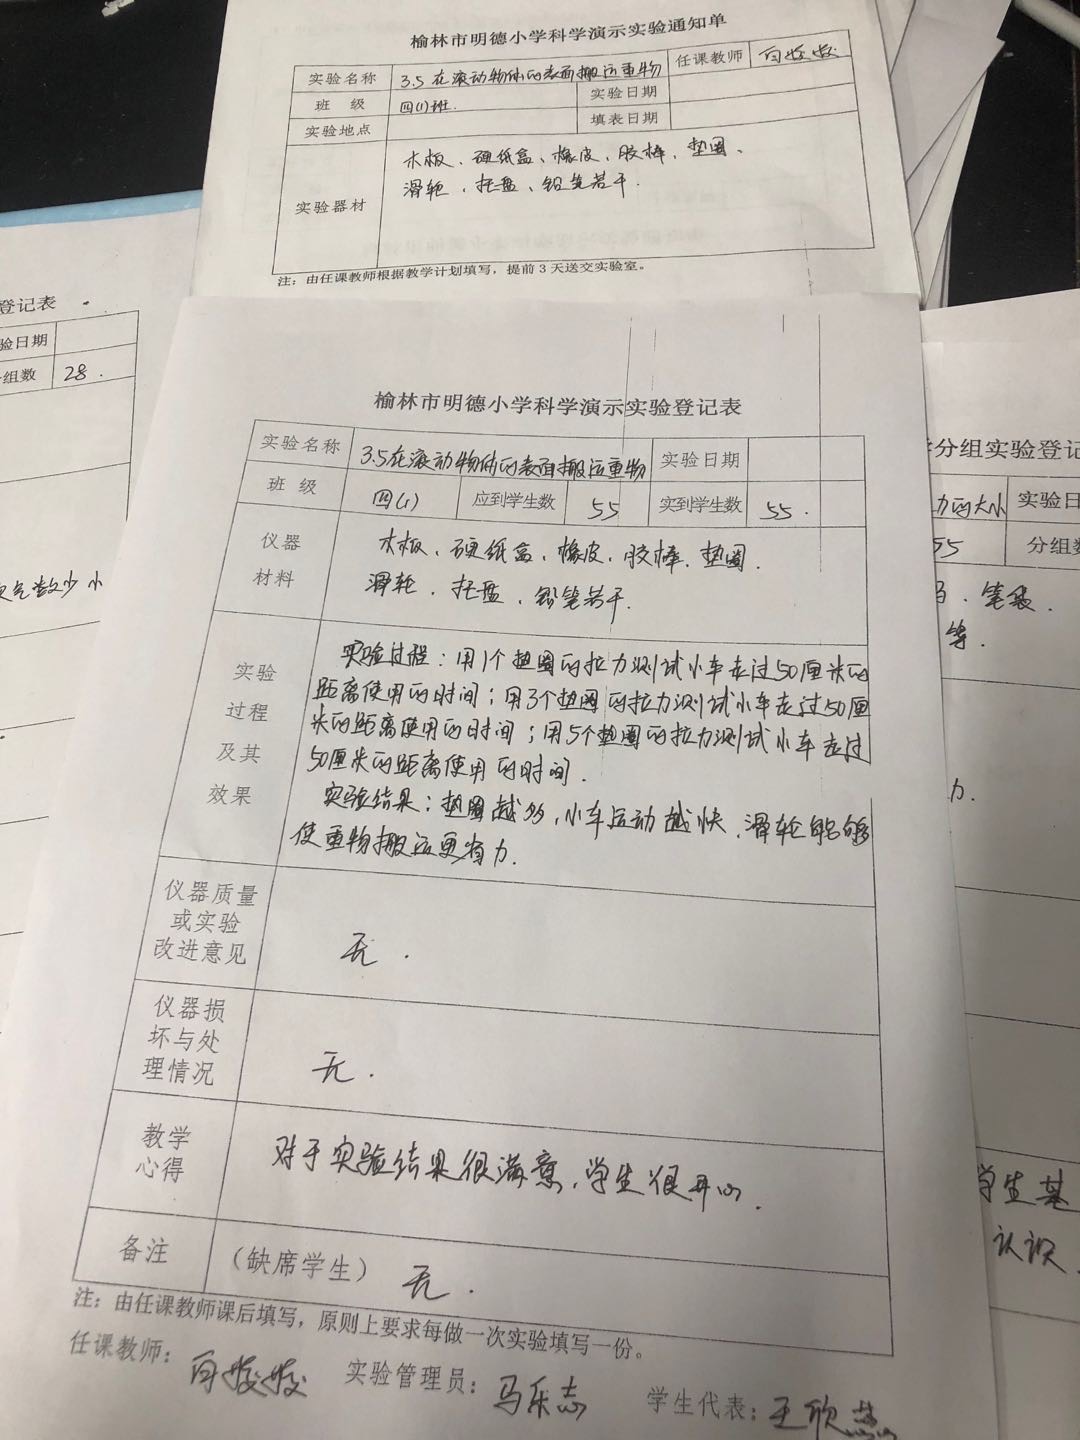 榆林市明德小学科学演示实验通知单
实验名称 3.5 在滚动物体的表面搬运重物 任课教师
班 级 四(1)班. 实验日期
实验地点 填表日期
实验器材
木板、硬纸盒、橡皮、胶棒、垫圈、
滑轮、托盘、铅笔若干.
注：由任课教师根据教学计划填写，提前 3 天送交实验室。
登记表
验日期
组数 28.
榆林市明德小学科学演示实验登记表
实验名称 3.5在滚动物体的表面搬运重物 实验日期
班 级 四(1) 应到学生数 55 实到学生数 55.
仪器
材料
木板、硬纸盒、橡皮、胶棒、垫圈、
滑轮、托盘、铅笔若干.
实验
过程
及其
效果
实验过程：用1个垫圈的拉力测试小车走过50厘米的
距离使用的时间；用3个垫圈的拉力测试小车走过50厘
米的距离使用的时间；用5个垫圈的拉力测试小车走过
50厘米的距离使用的时间.
实验结果：垫圈越多，小车运动越快、滑轮能够
使重物搬运更省力.
仪器质量
或实验
改进意见
无.
仪器损
坏与处
理情况
无.
教学
心得
对于实验结果很满意，学生很开心.
备注 （缺席学生） 无.
注：由任课教师课后填写，原则上要求每做一次实验填写一份。
任课教师： 实验管理员：马乐志 学生代表：王欣燕
分组实验登记
力的大小 实验日
55 分组数
笔袋.
等.
力.
学生基
认识.